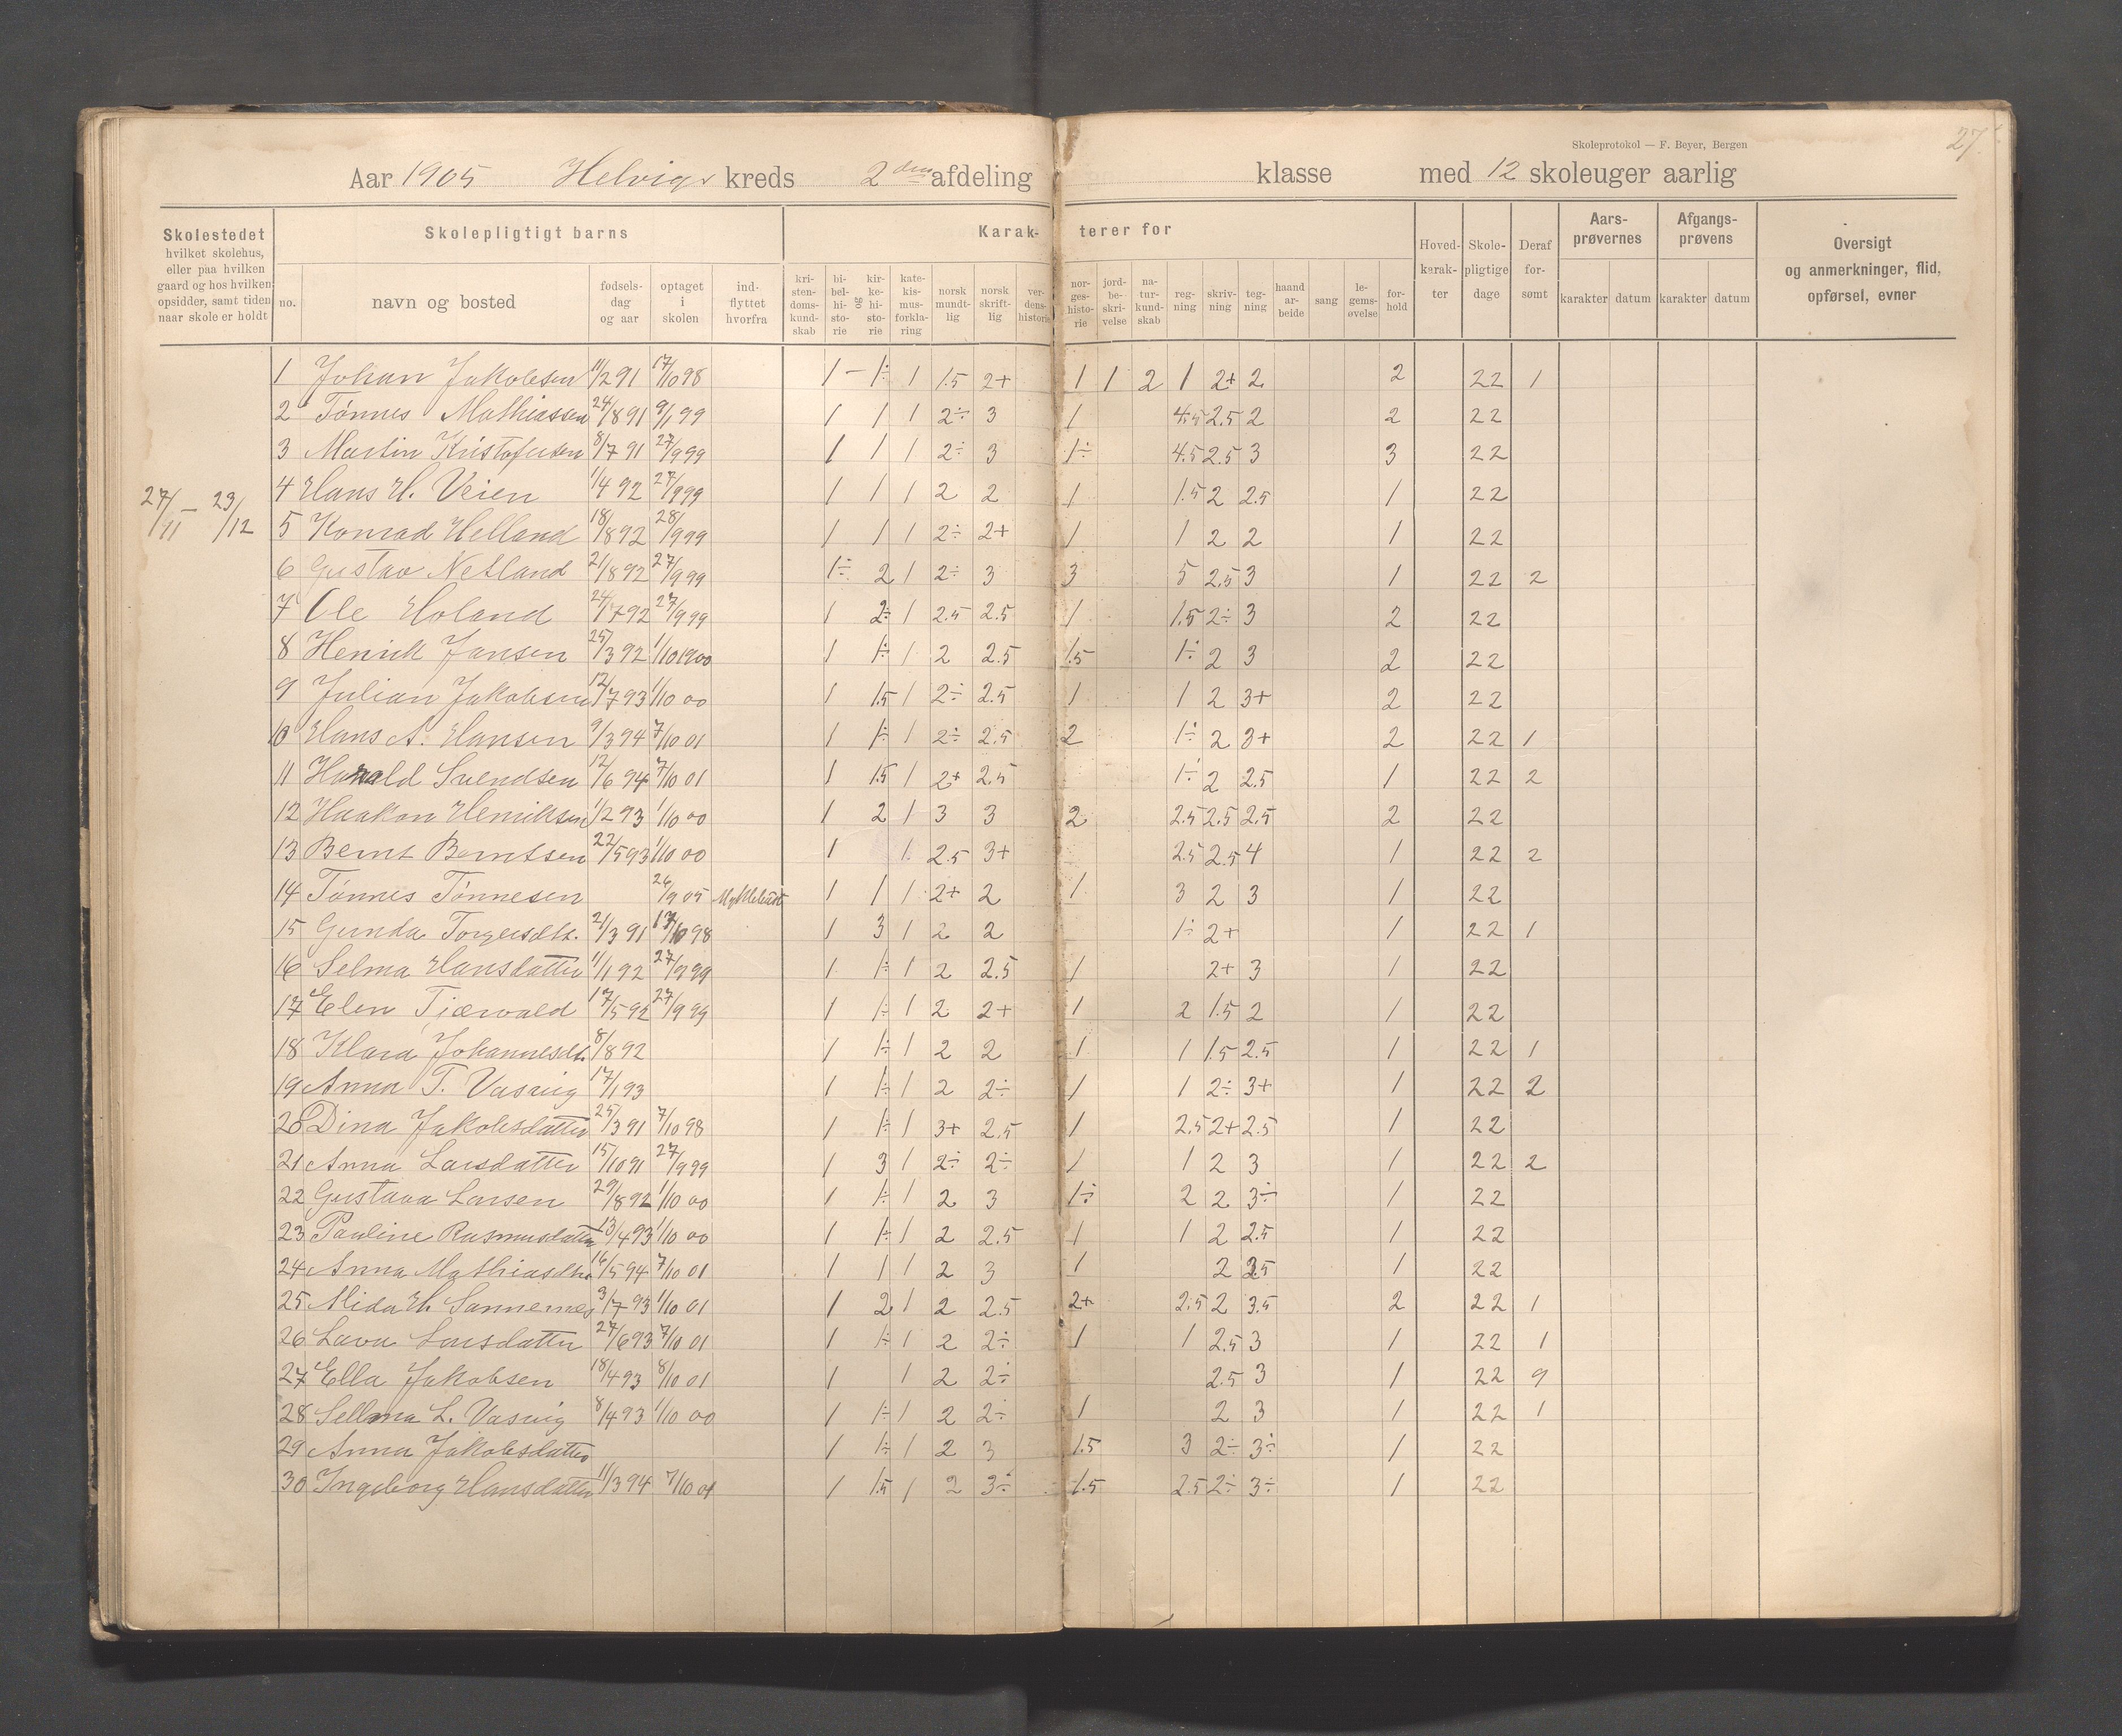 Skoleprotokol — F. Beyer, Bergen
27.
Aar 1905 Helvigs kreds 2den afdeling klasse med 12 skoleuger aarlig
Skolestedet hvilket skolehus, eller paa hvilken gaard og hos hvilken opsidder, samt tiden naar skole er holdt
Skolepligtigt barns
Karak- terer for
no. navn og bosted fødsels- dag og aar optaget i skolen ind- flyttet hvorfra
kri- sten- doms- kund- skab bi- bel- hi- sto- rie og kir- ke- hi- sto- rie kate- kis- mus- forkla- ring norsk mundt- lig norsk skrift- lig ver- dens- historie nor- ges- histo- rie jord- be- skri- velse na- tur- kund- skab reg- ning skriv- ning teg- ning haand ar- beide sang le- gems- øvelse for- hold
Hoved- karak- ter Skole- pligtige dage Deraf for- sømt Aars- prøvernes karakter datum Afgangs- prøvens karakter datum Oversigt og anmerkninger, flid, opførsel, evner
27/11 — 23/12
1 Johan Jakobsen 11/2 91 17/10 98 1 — 1÷ 1 1.5 2+ 1 1 2 1 2+ 2 2 22 1
2 Tönnes Mathiassen 24/8 91 9/1 99 1 1 1 2÷ 3 1 4.5 2.5 2 2 22
3 Martin Kristofersen 8/7 91 27/9 99 1 1 1 2÷ 3 1÷ 4.5 2.5 3 3 22
4 Hans H. Veien 1/4 92 27/9 99 1 1 1 2 2 1 1.5 2 2.5 1 22
5 Konrad Helland 18/8 92 28/9 99 1 1 1 2÷ 2+ 1 1 2 2 1 22
6 Gustav Netland 21/8 92 27/9 99 1÷ 2 1 2÷ 3 3 5 2.5 3 1 22 2
7 Ole Holand 24/7 92 27/9 99 1 2÷ 1 2.5 2.5 1 1.5 2÷ 3 2 22
8 Henrik Jansen 25/3 92 1/10 1900 1 1÷ 1 2 2.5 1.5 1÷ 2 3 2 22
9 Julian Jakobsen 12/7 93 1/10 00 1 1.5 1 2÷ 2.5 1 1 2 3+ 2 22
10 Hans A. Hansen 9/3 94 7/10 01 1 1÷ 1 2÷ 2.5 2 1÷ 2 3+ 2 22 1
11 Harald Svendsen 12/6 94 7/10 01 1 1.5 1 2+ 2.5 1÷ 2 2.5 1 22 2
12 Haakon Henriksen 1/2 93 1/10 00 1 2 1 3 3 2 2.5 2.5 2.5 2 22
13 Bernt Berntsen 22/5 93 1/10 00 1 1 2.5 3+ 2.5 2.5 4 1 22 2
14 Tönnes Tönnesen 26/9 05 1 1 1 2+ 2 1 3 2 3 1 22
15 Gunda Torgersdtt. 21/3 91 17/10 98 1 3 1 2 2 1÷ 2+ 1 22 1
16 Selma Hansdatter 11/1 92 27/9 99 1 1÷ 1 2 2.5 1 2+ 3 1 22
17 Elen Tjærvald 17/5 92 27/9 99 1 1÷ 1 2 2+ 1 2 1.5 2 1 22
18 Klara Johannesdt. 8/8 92 1 1÷ 1 2 2 1 1 1.5 2.5 1 22 1
19 Anna T. Vasvig 17/1 93 1 1÷ 1 2 2÷ 1 1 2÷ 3+ 1 22 2
20 Dina Jakobsdatter 25/3 91 7/10 98 1 1÷ 1 3+ 2.5 1 2.5 2+ 2.5 1 22
21 Anna Larsdatter 15/10 91 27/9 99 1 3 1 2÷ 2÷ 1 1 2 3 1 22 2
22 Gustava Larsen 29/8 92 1/10 00 1 1÷ 1 2 3 1÷ 2 2 3÷ 1 22
23 Pauline Rasmusdatter 13/4 93 1/10 00 1 1÷ 1 2 2.5 1 1 2 2.5 1 22
24 Anna Mathiasdtr 16/5 94 7/10 01 1 1 1 2 3 1 2 2.5 1 22
25 Alida H. Sannesmeg 3/7 93 1/10 01 1 2 1 2 2.5 2+ 2.5 2 3.5 2 22 1
26 Lava Larsdatter 27/6 93 7/10 01 1 1÷ 1 2 2÷ 1 1 2.5 3 1 22 1
27 Ella Jakobsen 18/4 93 8/10 01 1 1 2 2÷ 2.5 3 1 22 9
28 Sellma L. Vasvig 8/4 93 1/10 00 1 1÷ 1 2 2÷ 1 2 3 1 22 1
29 Anna Jakobsdatter 1 1÷ 1 2 3 1.5 3 2÷ 3÷ 1 22
30 Ingeborg Hansdatter 11/3 94 7/10 01 1 1.5 1 2 3÷ 1.5 2.5 2÷ 3÷ 1 22